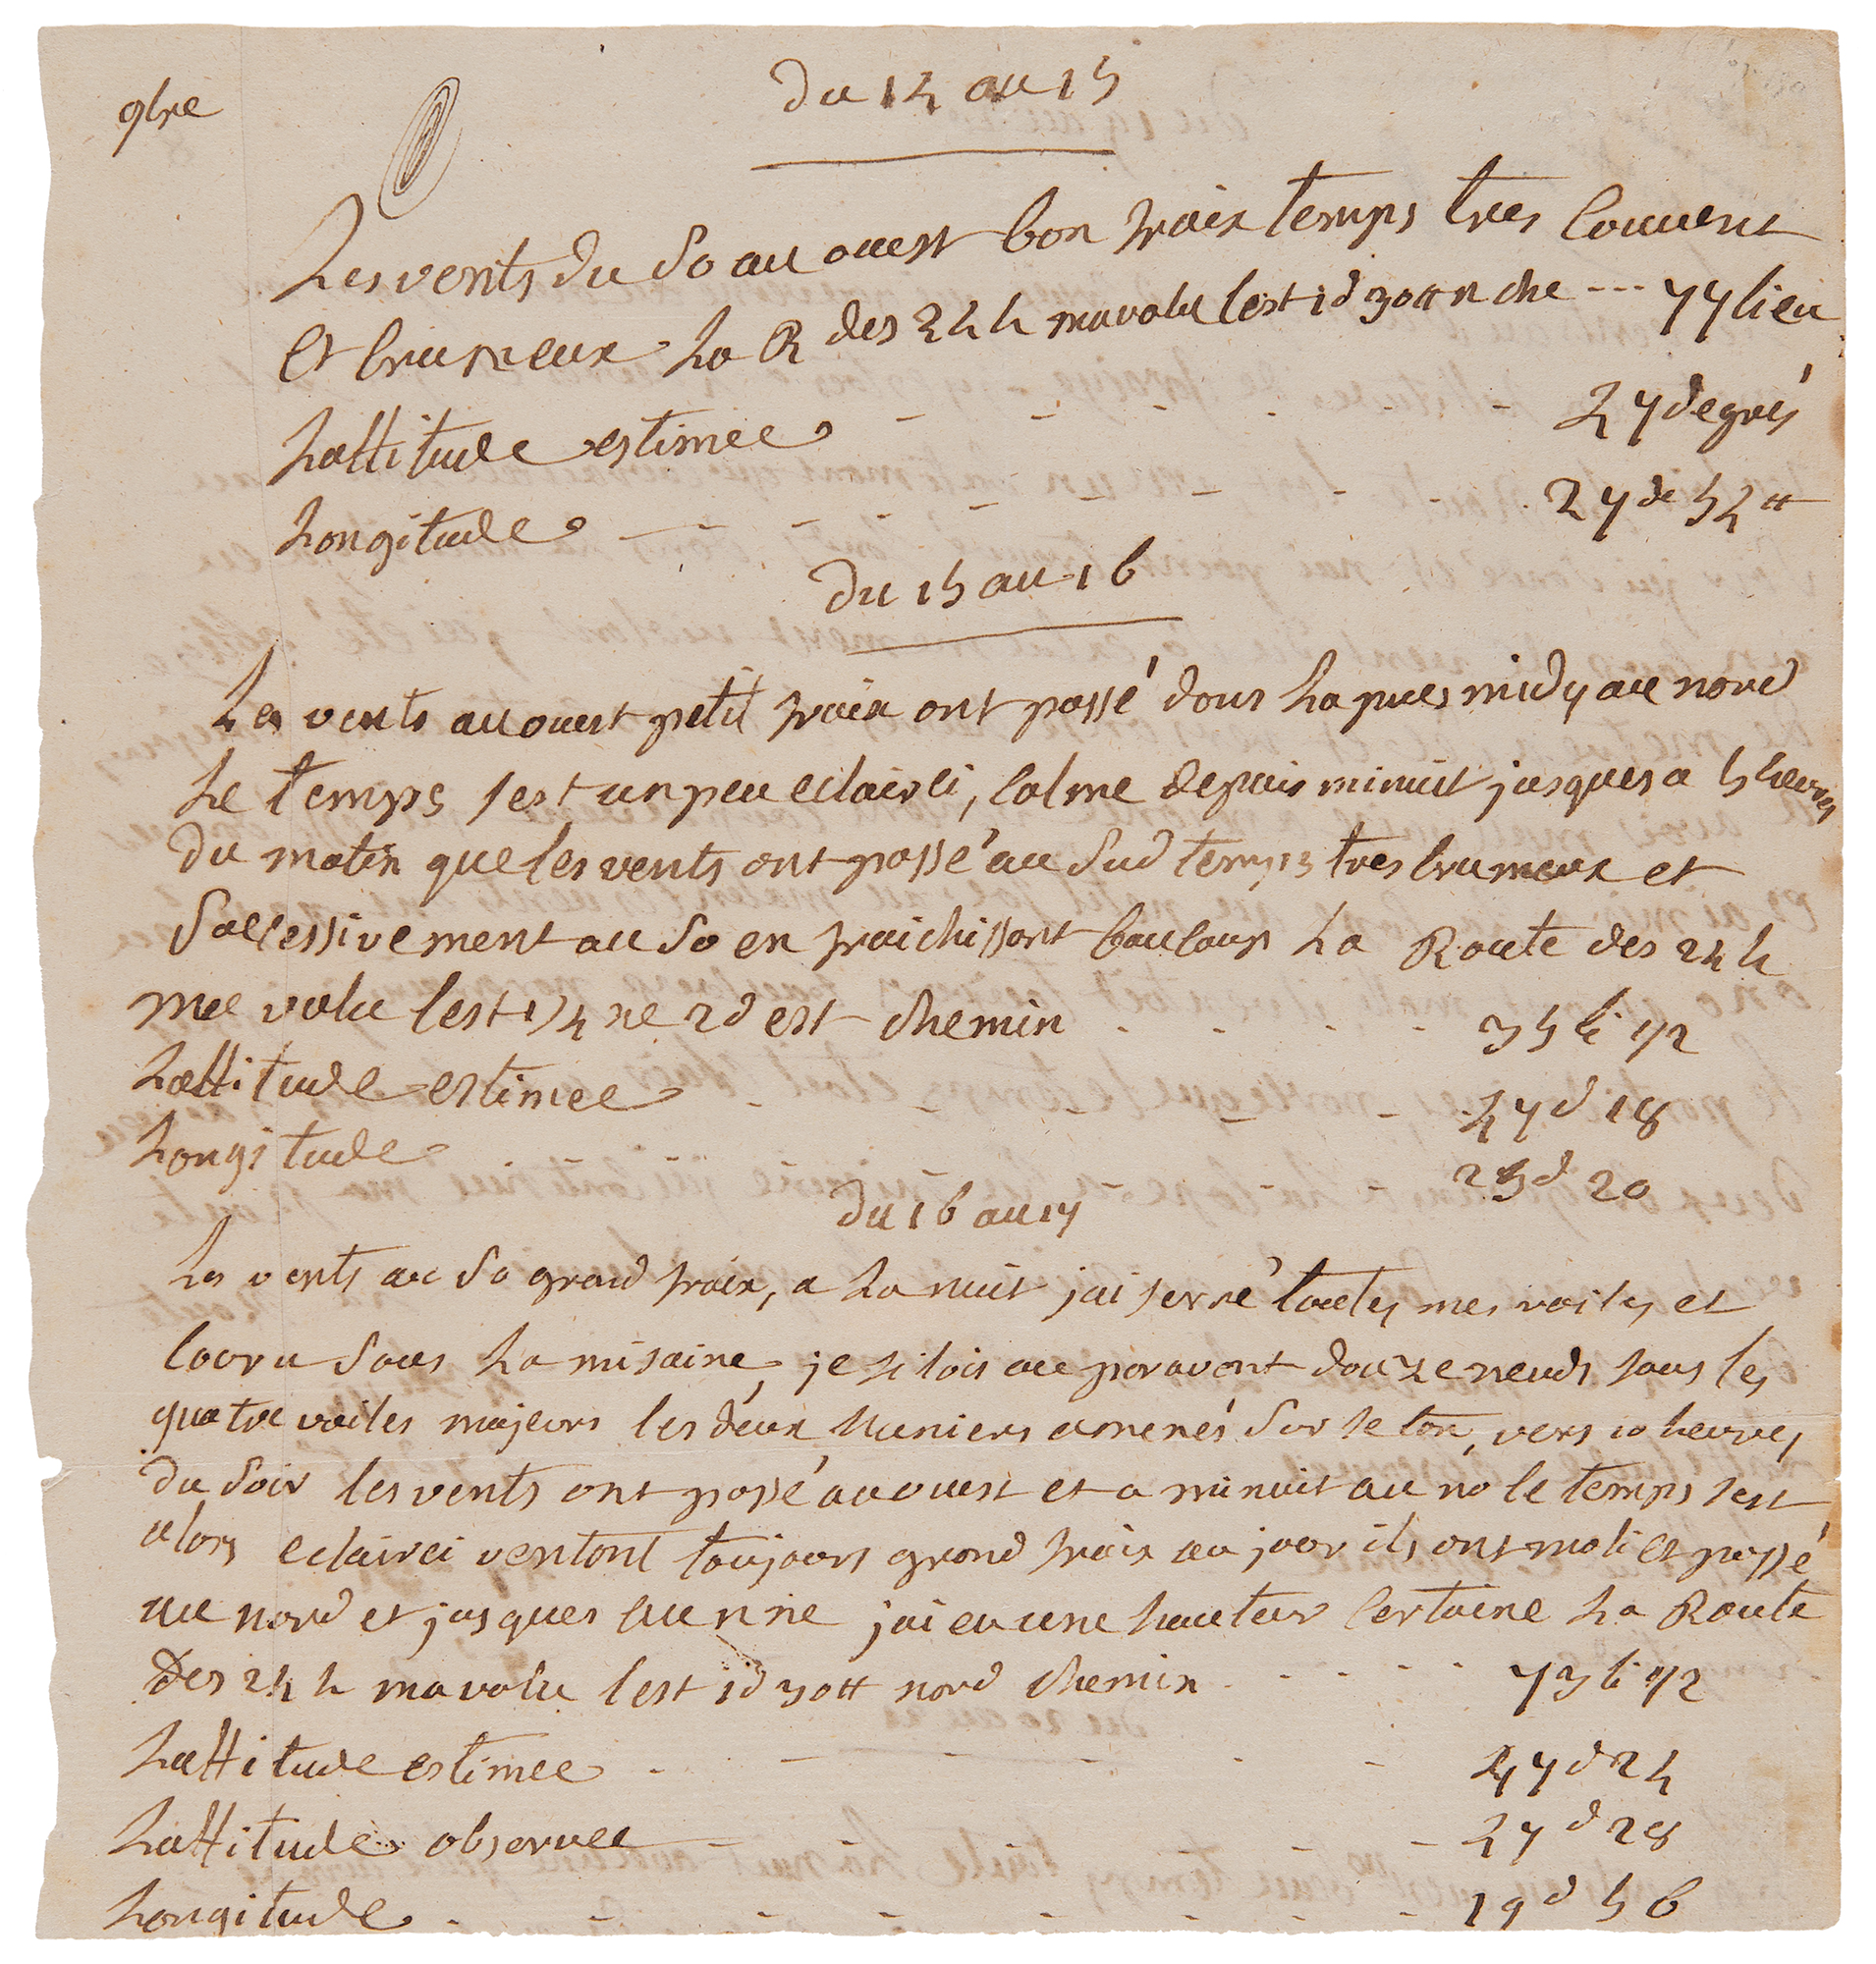 9bre
du 14 au 15
Les vents du So au ouest bon fraix temps tres couvert
Et brumeux La R des 24 h ma valu lest 1d 30tt n che --- 77 lieu
Lattitude estimee - - - - - - 47 degrés
Longitude - - - - - - - 27 de 54 tt
du 15 au 16
Les vents au ouest petit fraix ont passé dans Lapres midy au nord
Le temps sest un peu eclairci, calme depuis minuit jusques a 5 heures
du matin que les vents ont passé au Sud temps tres brumeux et
Successivement au So en fraichissant baucoup La Route des 24 h
mee valu lest 1/4 ne 2d est chemin - - - - 35 li 1/2
Lattitude estimee - - - - - 47 d 18
Longitude - - - - - - 25 d 20
du 16 au 17
Les vents au So grand fraix, a La nuit jai serré toutes mes voiles et
couru Sous La misaine, je filois au paravant douze neuds sous les
quatre voiles majeurs les deux huniers amenés Sur le ton, vers 10 heures
du Soir les vents ont passé au ouest et a minuit au no le temps sest
alors eclairci ventant toujours grand fraix au jour ils ont moli et passé
au nord et jusques au n ne jai eu une hauteur certaine La Route
Des 24 h ma valu lest 1d 30tt nord chemin - - - - 73 li 1/2
Lattitude estimee - - - - - - 47 d 24
Lattitude observee - - - - 47 d 28
Longitude - - - - - - - 19 d 56